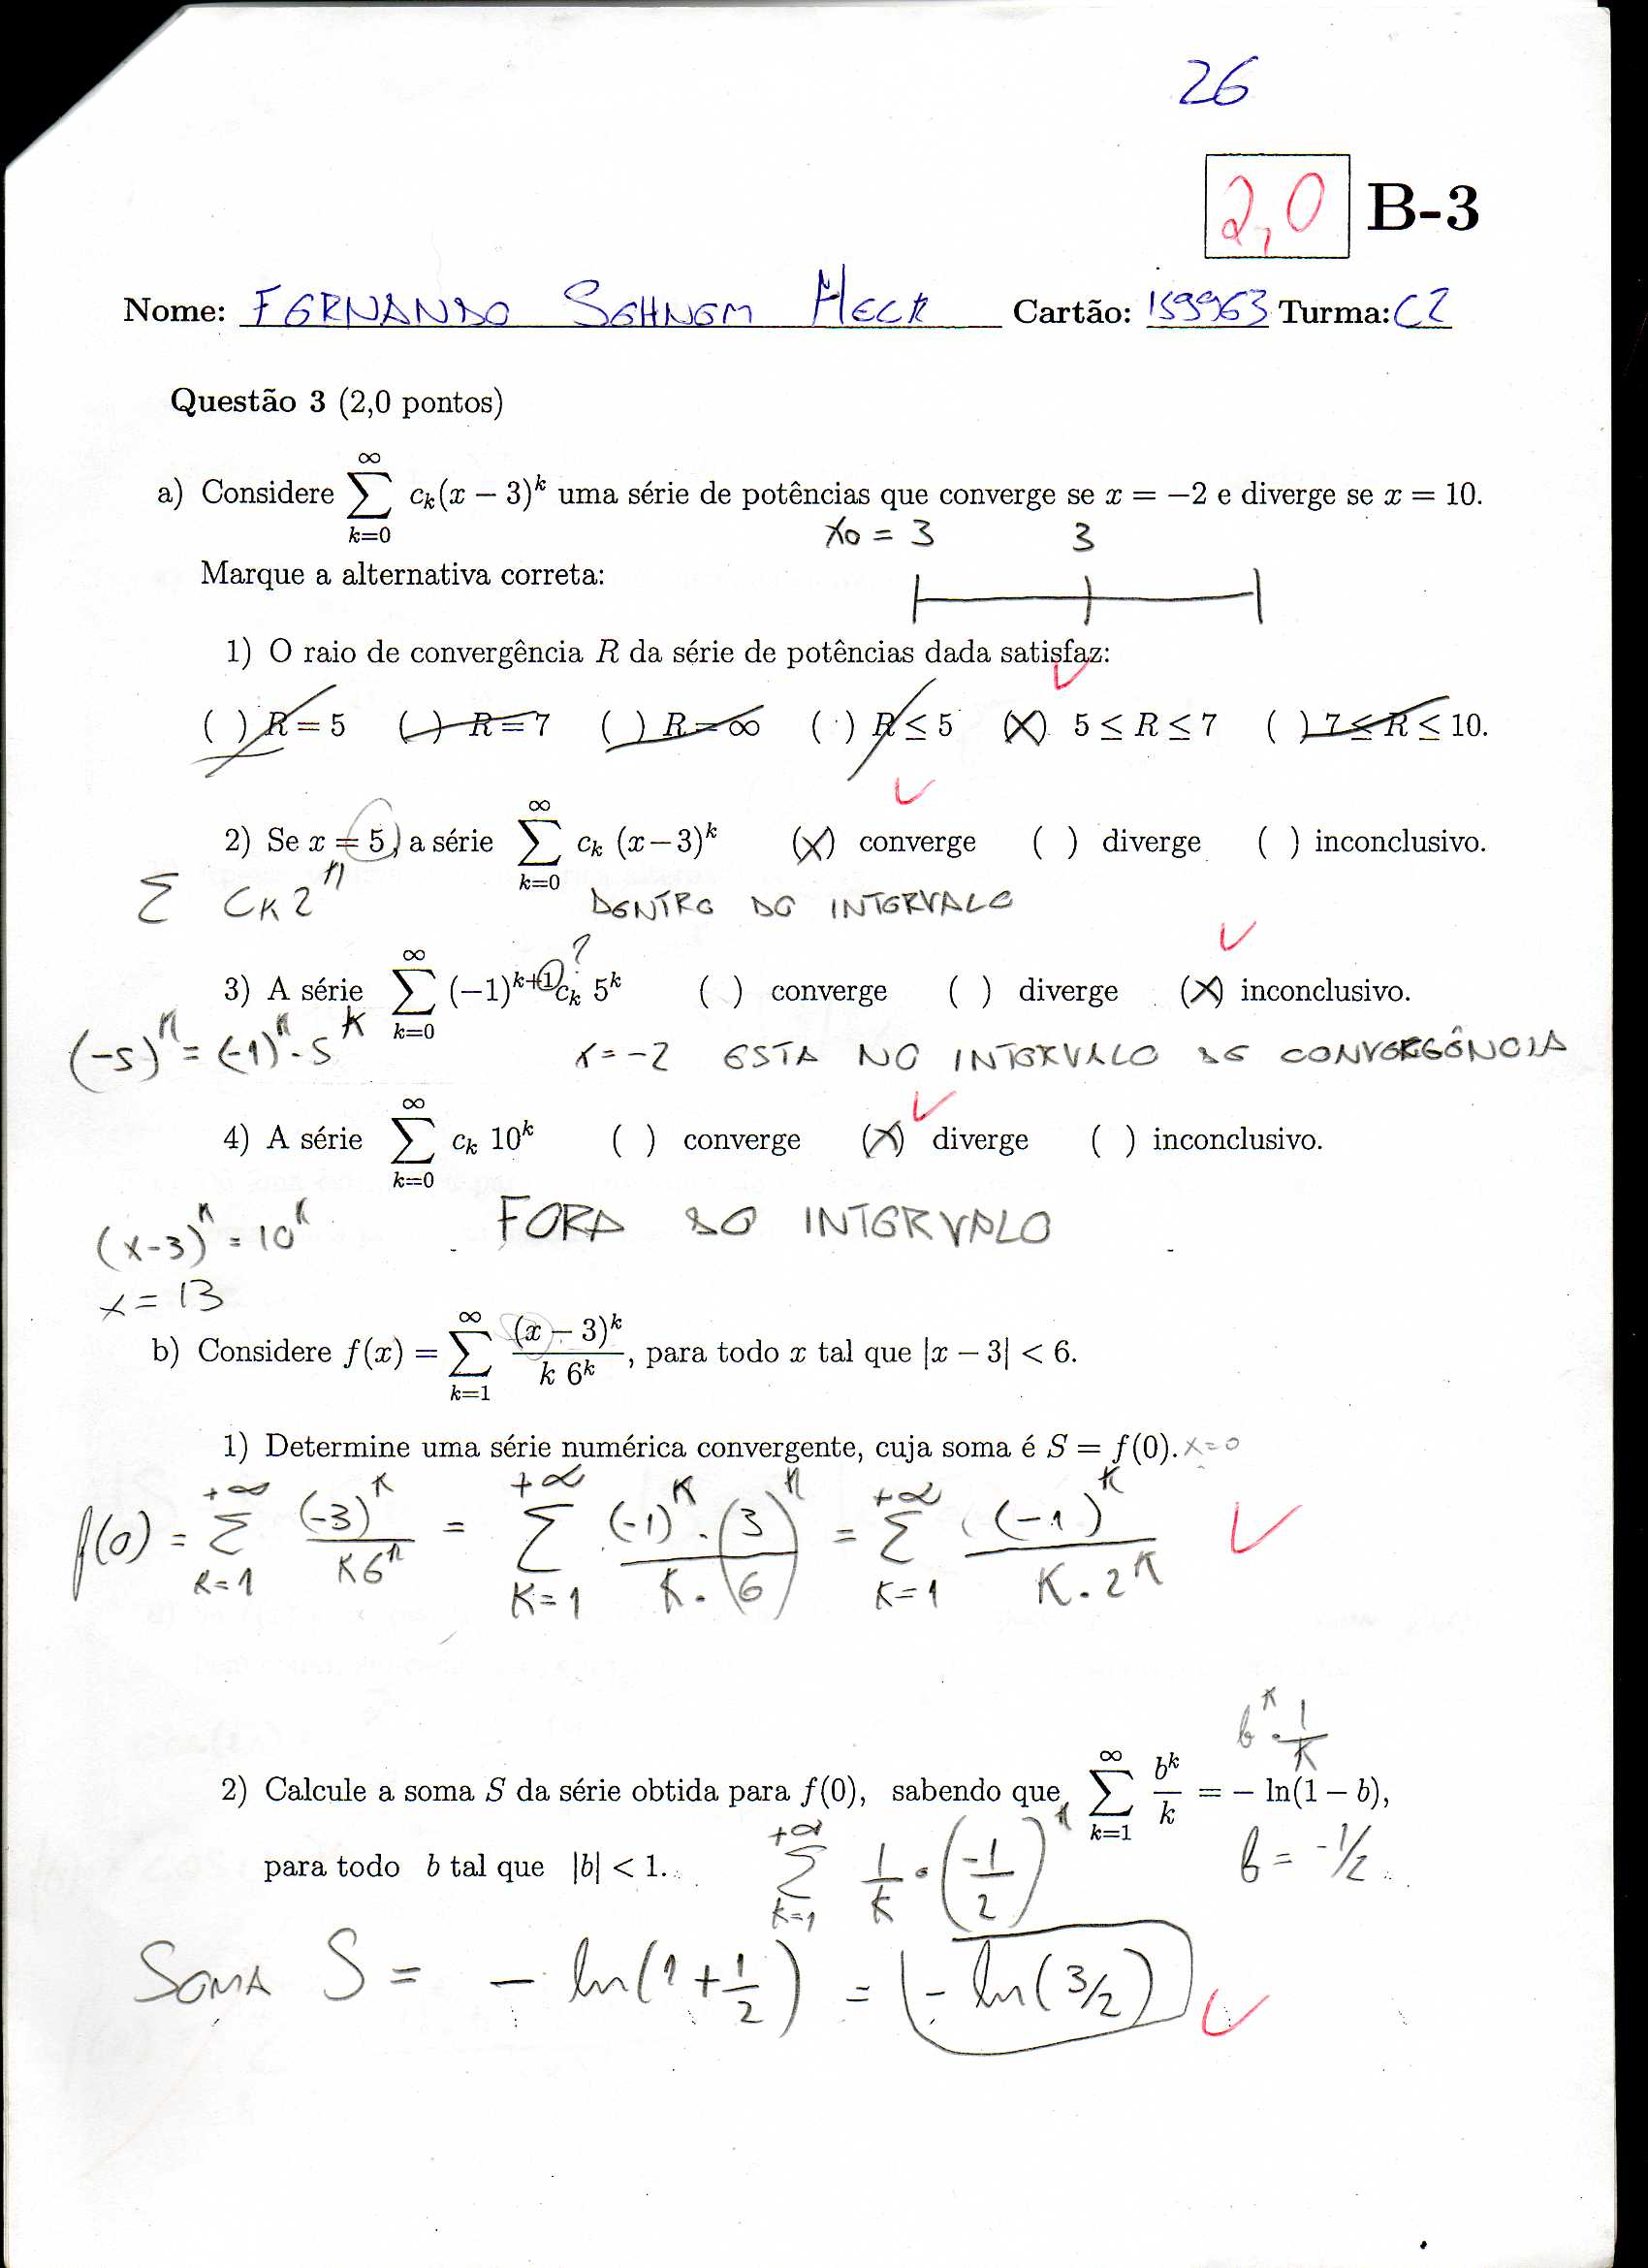 26
2,0 B-3
Nome: FERNANDO SCHNEM HECK Cartão: 159963 Turma: C2
Questão 3 (2,0 pontos)
a) Considere ∑_{k=0}^{∞} c_k(x − 3)^k uma série de potências que converge se x = −2 e diverge se x = 10.
x₀ = 3 3
Marque a alternativa correta:
1) O raio de convergência R da série de potências dada satisfaz:
( ) R = 5 ( ) R = 7 ( ) R = ∞ ( ) R ≤ 5 (X) 5 ≤ R ≤ 7 ( ) 7 ≤ R ≤ 10.
2) Se x = 5, a série ∑_{k=0}^{∞} c_k (x−3)^k (X) converge ( ) diverge ( ) inconclusivo.
∑ C_K 2^K DENTRO DO INTERVALO
?
3) A série ∑_{k=0}^{∞} (−1)^{k+1} c_k 5^k ( ) converge ( ) diverge (X) inconclusivo.
(-5)^K = (-1)^K · 5^K x = -2 ESTA NO INTERVALO DE CONVERGÊNCIA
4) A série ∑_{k=0}^{∞} c_k 10^k ( ) converge (X) diverge ( ) inconclusivo.
(x-3)^K = 10^K FORA DO INTERVALO
x = 13
b) Considere f(x) = ∑_{k=1}^{∞} (x − 3)^k / (k 6^k), para todo x tal que |x − 3| < 6.
1) Determine uma série numérica convergente, cuja soma é S = f(0). x=0
f(0) = ∑_{K=1}^{+∞} (-3)^K / (K 6^K) = ∑_{K=1}^{+∞} (-1)^K · (3)^K / (K · (6)^K) = ∑_{K=1}^{+∞} (-1)^K / (K · 2^K)
b^K · 1/K
2) Calcule a soma S da série obtida para f(0), sabendo que ∑_{k=1}^{∞} b^k/k = − ln(1 − b),
para todo b tal que |b| < 1. ∑_{K=1}^{+∞} 1/K · (-1/2)^K b = -1/2
SOMA S = - ln(1 + 1/2) = - ln(3/2)